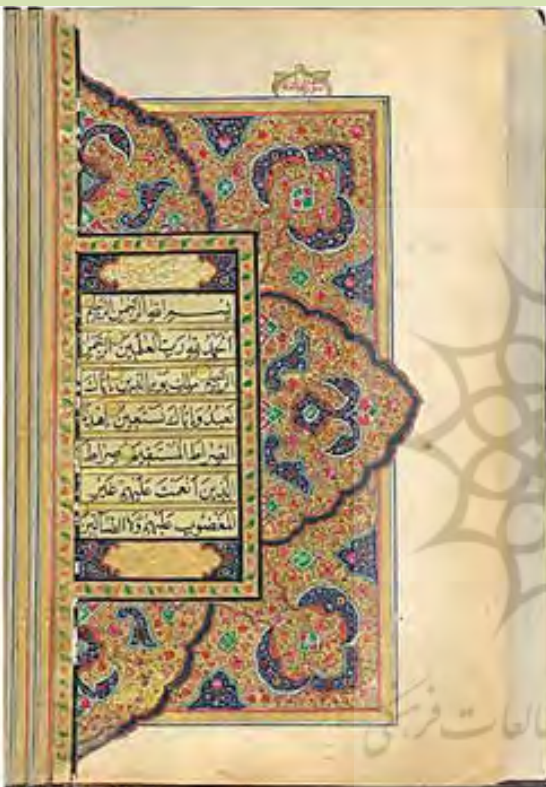 بِسْمِ اللهِ الرَّحْمٰنِ الرَّحِيْمِ
اَلْحَمْدُ لِلّٰهِ رَبِّ الْعٰلَمِيْنَ الرَّحْمٰنِ
الرَّحِيْمِ مٰلِكِ يَوْمِ الدِّيْنِ اِيَّاكَ
نَعْبُدُ وَاِيَّاكَ نَسْتَعِيْنُ اِهْدِنَا
الصِّرَاطَ الْمُسْتَقِيْمَ صِرَاطَ
الَّذِيْنَ اَنْعَمْتَ عَلَيْهِمْ غَيْرِ
الْمَغْضُوْبِ عَلَيْهِمْ وَلَا الضَّالِّيْنَ
العات فرهنگی